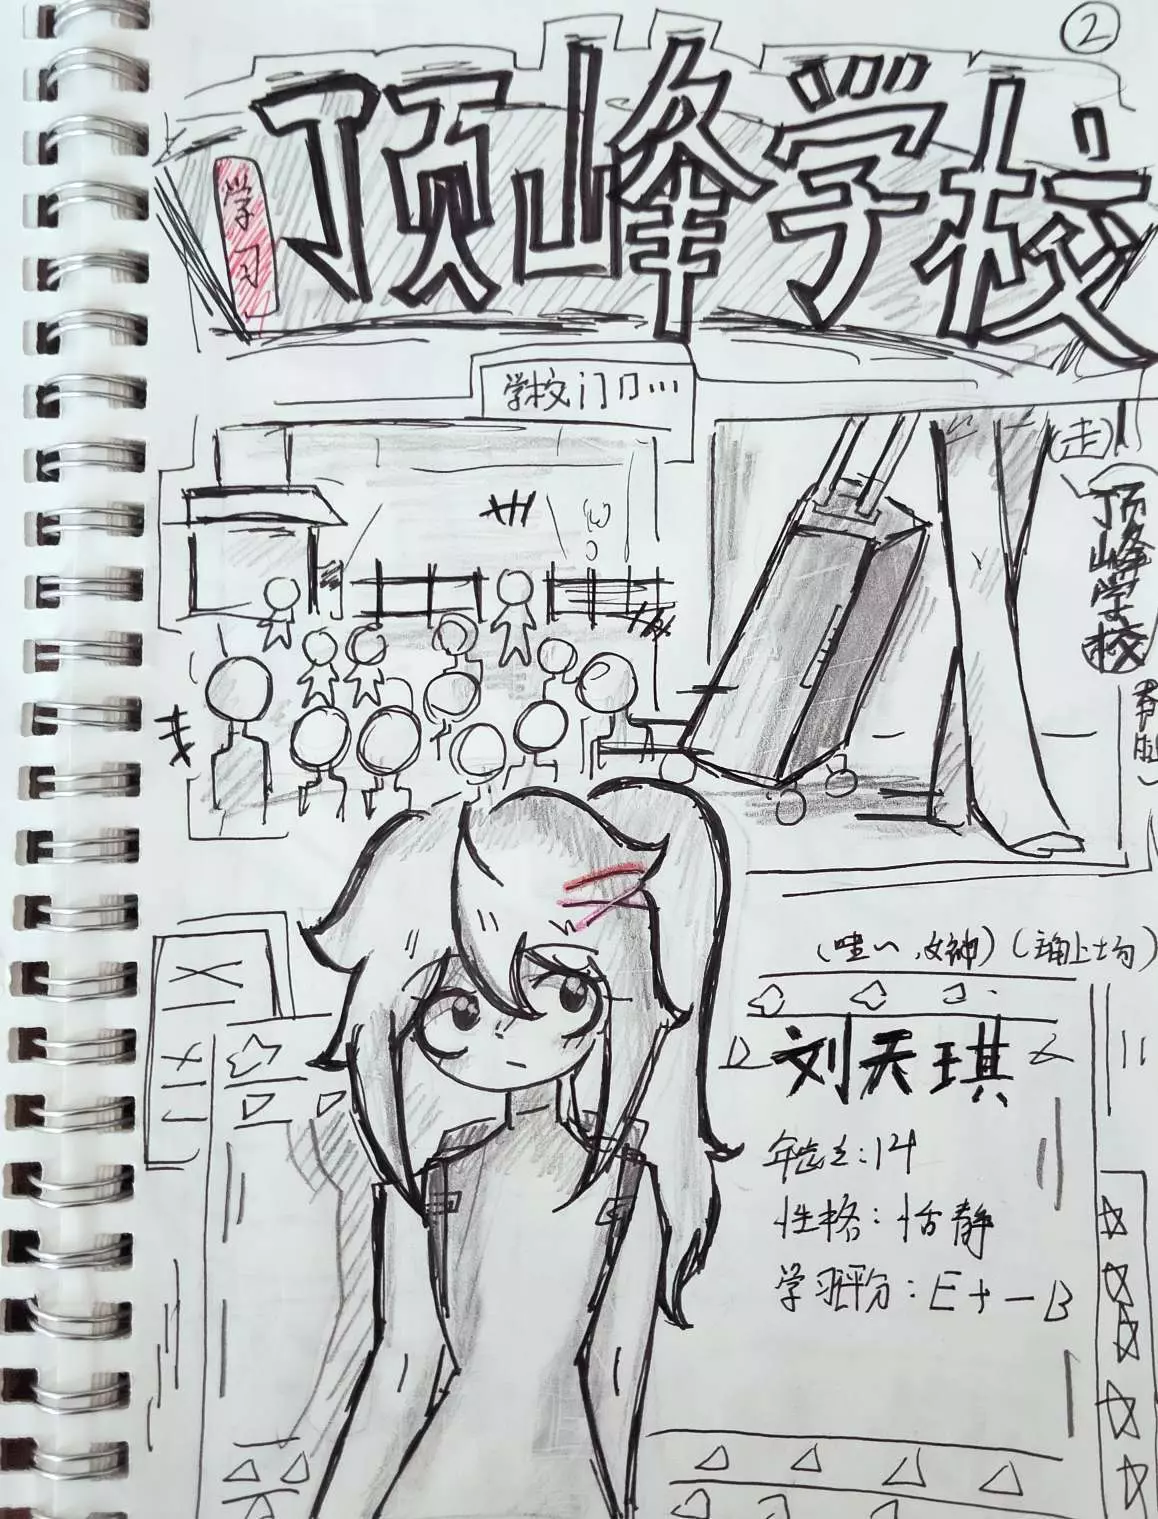 ②
顶峰学校
学习
学校门口…
(走)
顶峰学校
(哇~,女神)(主角上场)
刘天琪
年龄:14
性格:恬静
学习评分:E+—B